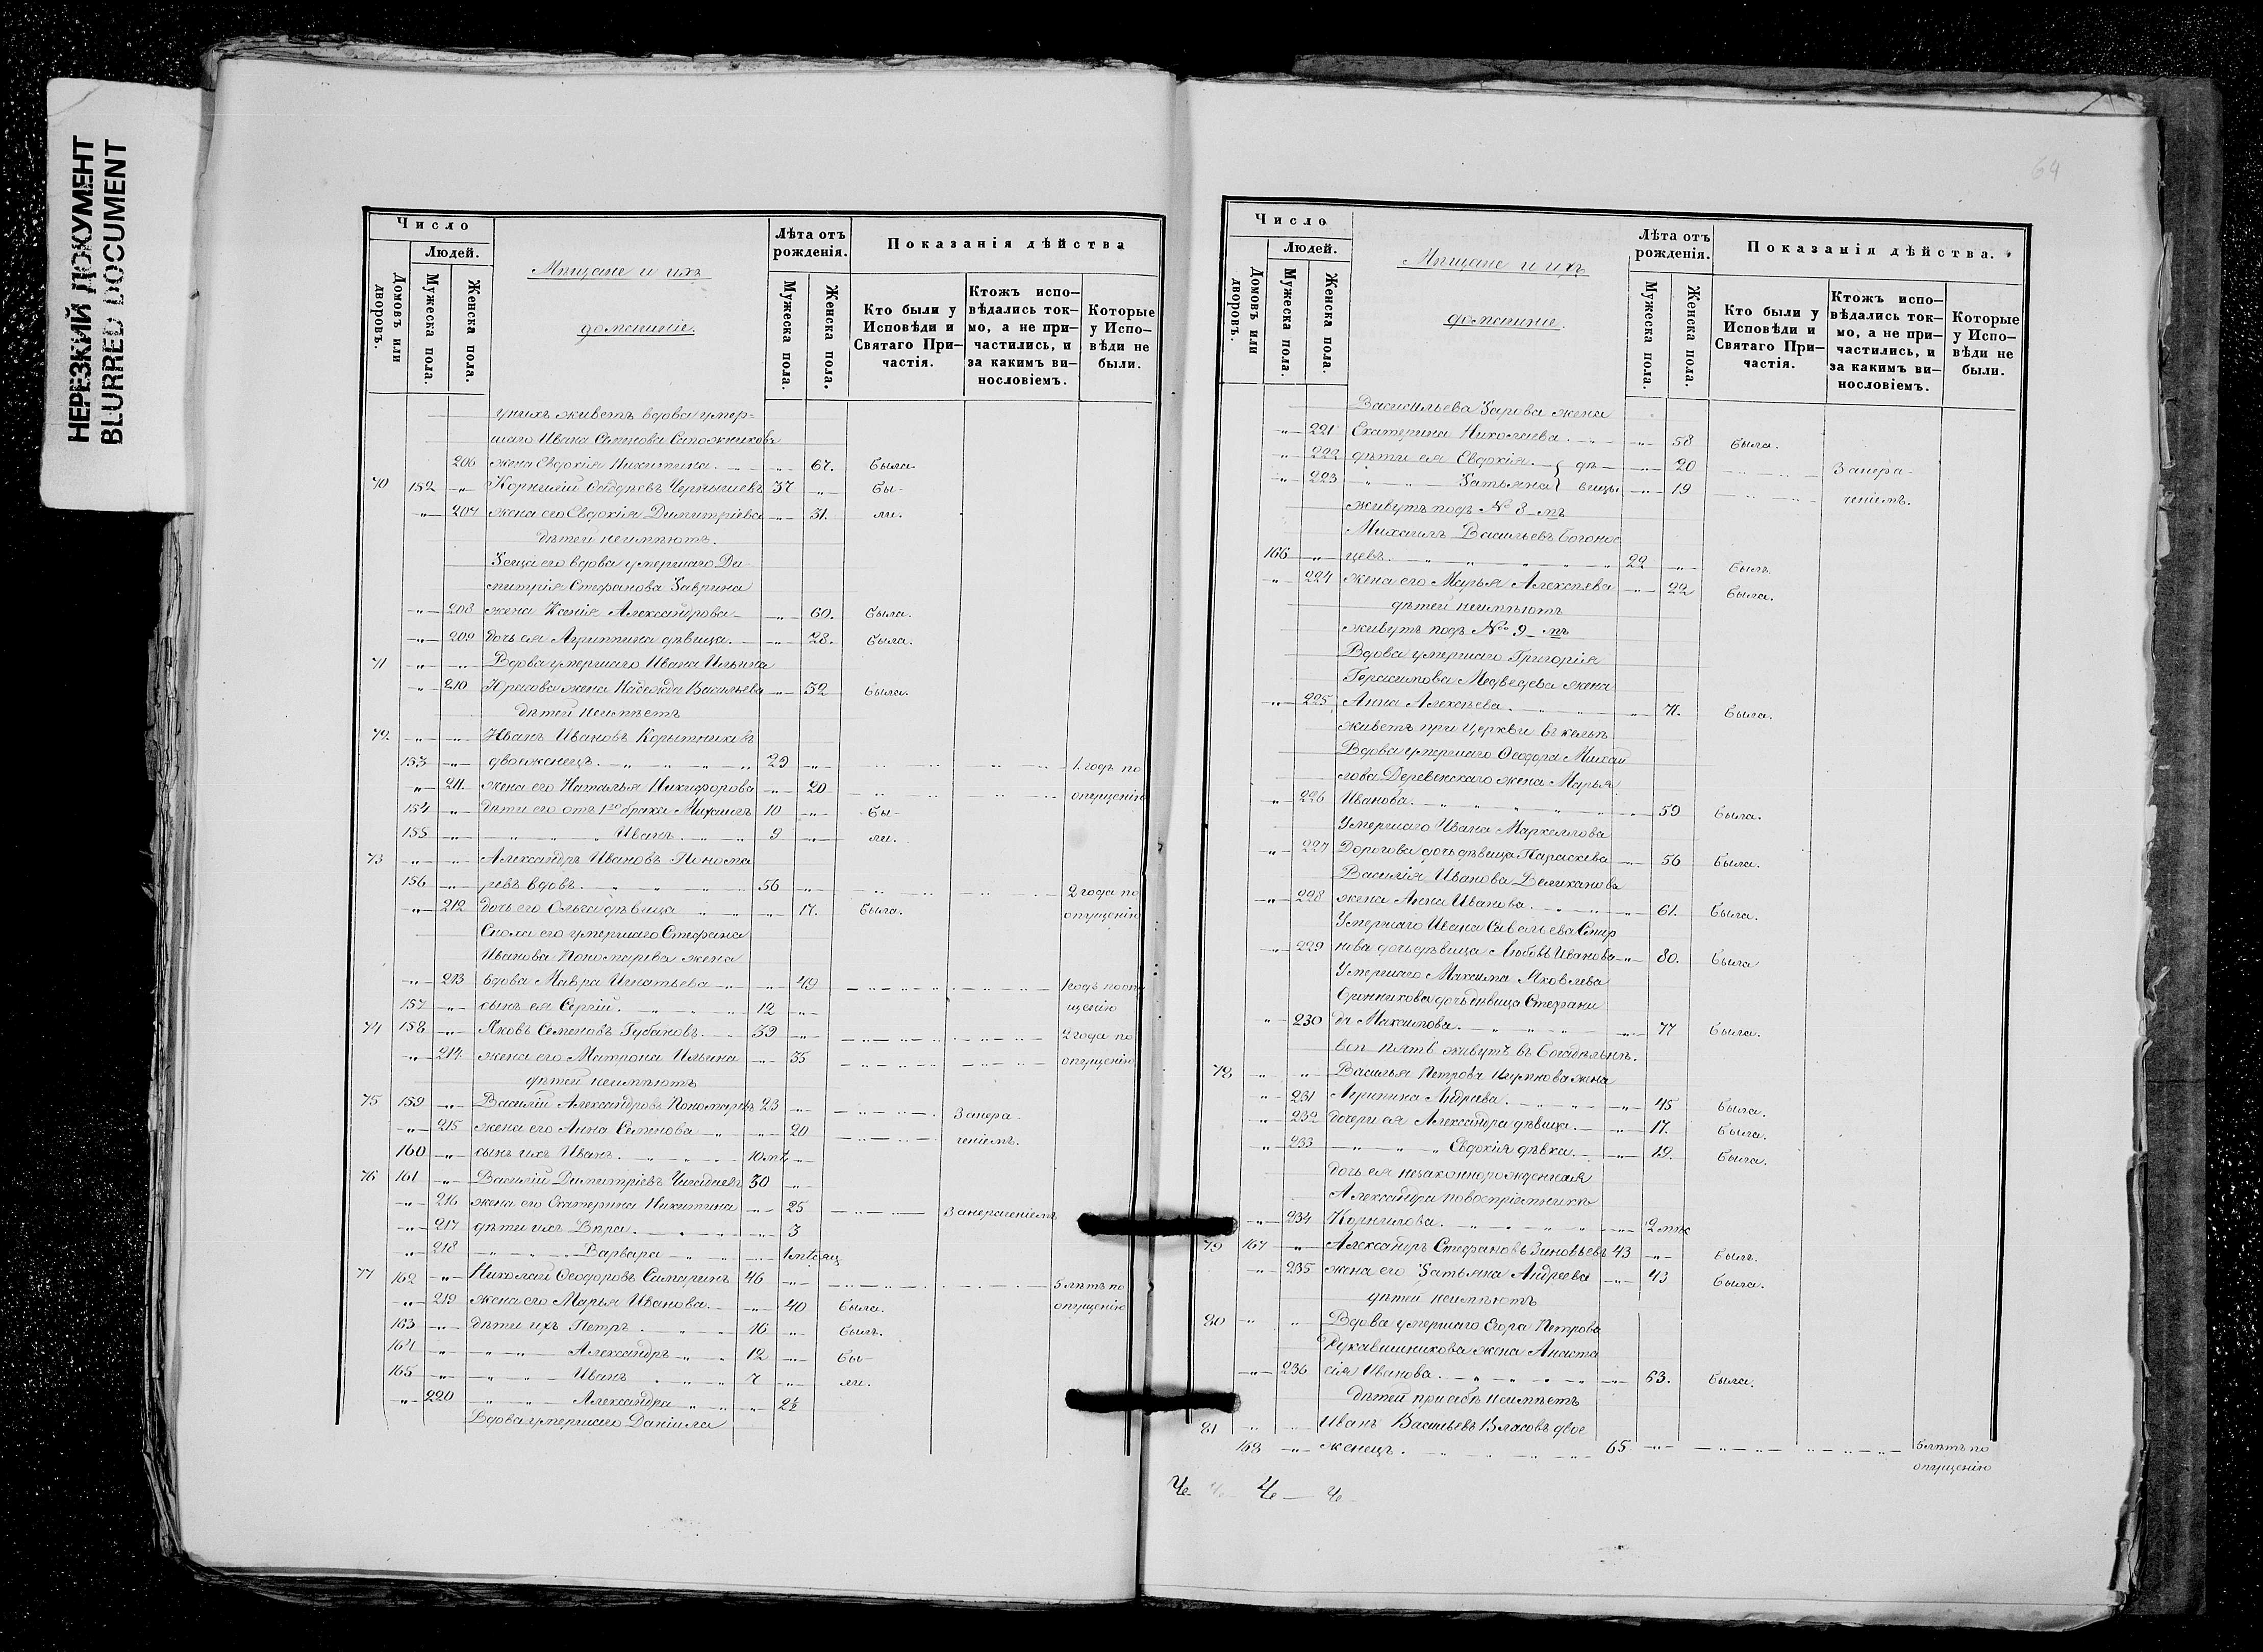 НЕРЕЗКИЙ ДОКУМЕНТ
BLURRED DOCUMENT
Число
Людей.
Домовъ или дворовъ.
Мужеска пола.
Женска пола.
Мѣщане и ихъ
домашніе.
Лѣта отъ рожденія.
Мужеска пола.
Женска пола.
Показанія дѣйства
Кто были у Исповѣди и Святаго При-частія.
Ктожъ испо-вѣдались ток-мо, а не при-частились, и за какимъ ви-нословіемъ.
Которые у Испо-вѣди не были.
у нихъ живетъ вдова умер-
шаго Ивана Семенова Сапожникова
206 жена Евдокія Никитина. 67. была.
70 152 Корнилій Фадѣевъ Чернышевъ 37 бы-
207 жена его Евдокія Димитріева 31. ли.
дѣтей неимѣютъ.
Теща его вдова умершаго Ди-
митрія Стефанова Таврина
208 жена Ксенія Александрова 60. была.
209 дочь ея Агриппина дѣвица. 28. была.
71 Вдова умершаго Ивана Ильина
210 жена Надежда Васильева 32 была.
дѣтей неимѣетъ
72 Иванъ Ивановъ Корытниковъ
153 двоеженецъ. 29 1. годъ по
211. жена его Наталья Никифорова 20 опущенію
154 дѣти его отъ 1го брака Михаилъ 10 бы-
155 Иванъ 9 ли.
73 Александръ Ивановъ Понома
156 ревъ вдовъ. 56 2 года по
212 дочь его Ольга дѣвица 17. была. опущенію
Сноха его умершаго Стефана
Иванова Пономарева жена
213 вдова Мавра Игнатьева 49 1 годъ по опу
157 сынъ ея Сергій. 12 щенію
74 158 Яковъ Семеновъ Губановъ. 39 2 года по
214 жена его Матрона Ильина 35 опущенію
дѣтей неимѣютъ
75 159 Василій Александровъ Пономаревъ 23 Занера-
215 жена его Анна Семенова 20 ченіемъ.
160 сынъ ихъ Иванъ. 10 мѣ
76 161 Василій Димитріевъ 30
216 жена его Екатерина Никитина 25 Занераченіемъ
217 дѣти ихъ Вѣра. 3
218 Варвара 1 мѣсяц
77 162 Николай Ѳеодоровъ Самаринъ 46 5 лѣтъ по
219 жена его Марья Иванова. 40 была. опущенію
163 дѣти ихъ Петръ 16 былъ.
164 Александръ 12 бы-
165 Иванъ 7 ли.
220 Александра 2½
Вдова умершаго Даніила
64
Число
Людей.
Домовъ или дворовъ.
Мужеска пола.
Женска пола.
Мѣщане и ихъ
домашніе.
Лѣта отъ рожденія.
Мужеска пола.
Женска пола.
Показанія дѣйства.
Кто были у Исповѣди и Святаго При-частія.
Ктожъ испо-вѣдались ток-мо, а не при-частились, и за какимъ ви-нословіемъ.
Которые у Испо-вѣди не были.
Васильева Тарова жена
221 Екатерина Николаева. 58 была.
222 дѣти ея Евдокія. дѣ- 20 Занера-
223 Татьяна вицы 19 ченіемъ.
живутъ подъ № 8-мъ
Михаилъ Васильевъ Богонос
166 цевъ. 22 былъ.
224 жена его Марья Алексѣева 22 была.
дѣтей неимѣютъ
живутъ подъ № 9-мъ
Вдова умершаго Григорія
Герасимова Медведева жена
225 Анна Алексѣева. 71. была.
живетъ при Церкви въ кельѣ
Вдова умершаго Ѳеодора Михаи
лова Деревенскаго жена Марья
226 Иванова. 59 была.
Умершаго Ивана Маркеллова
227 Дорогова дочь дѣвица Параскева 56 была.
Василія Иванова Великанова
228 жена Анна Иванова. 61. была.
Умершаго Ивана Савельева Смир
229 нова дочь дѣвица Любовь Иванова 80. была
Умершаго Максима Яковлева
дочь дѣвица Стефани
230 да Максимова. 77 была.
всѣ пять живутъ въ богадѣльнѣ.
78 Василья Петрова жена
231 Агрипина Андреева. 45 была.
232 дочери ея Александра дѣвица. 17. была.
233 Евдокія дѣвка. 19. была.
дочь ея незаконнорожденная
Александра по воспріемникѣ
234 Корнилова. 2 мѣс
79 167 Александръ Стефановъ Зиновьевъ 43 былъ.
235 жена его Татьяна Андреева 43 была.
дѣтей неимѣютъ
80 Вдова умершаго Егора Петрова
Рукавишникова жена Анаста
236 сія Иванова. 63. была.
дѣтей при себѣ неимѣетъ
81 Иванъ Васильевъ Власовъ двое
168 женецъ. 65 5 лѣтъ по
опущенію
Че Че Че Че